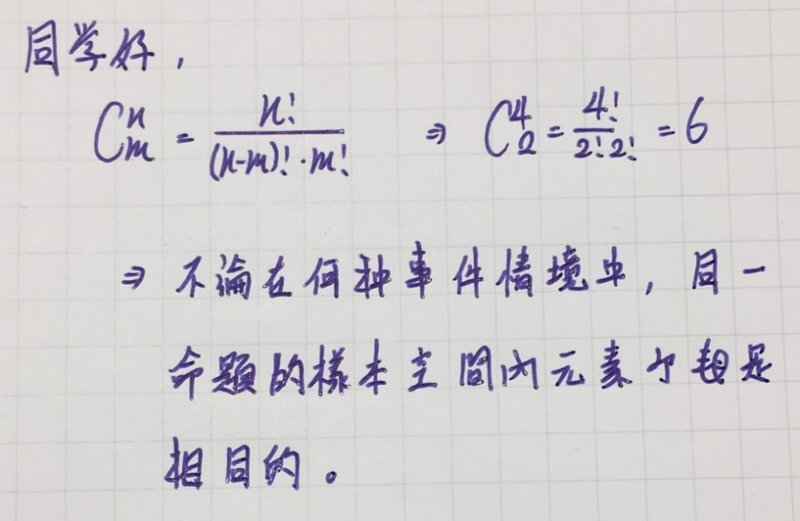 同学好,
C^n_m = n! / ((n-m)!·m!) ⇒ C^4_2 = 4! / (2!2!) = 6
⇒ 不論在何种事件情境中, 同一
命題的樣本空間内元素个數是
相同的。